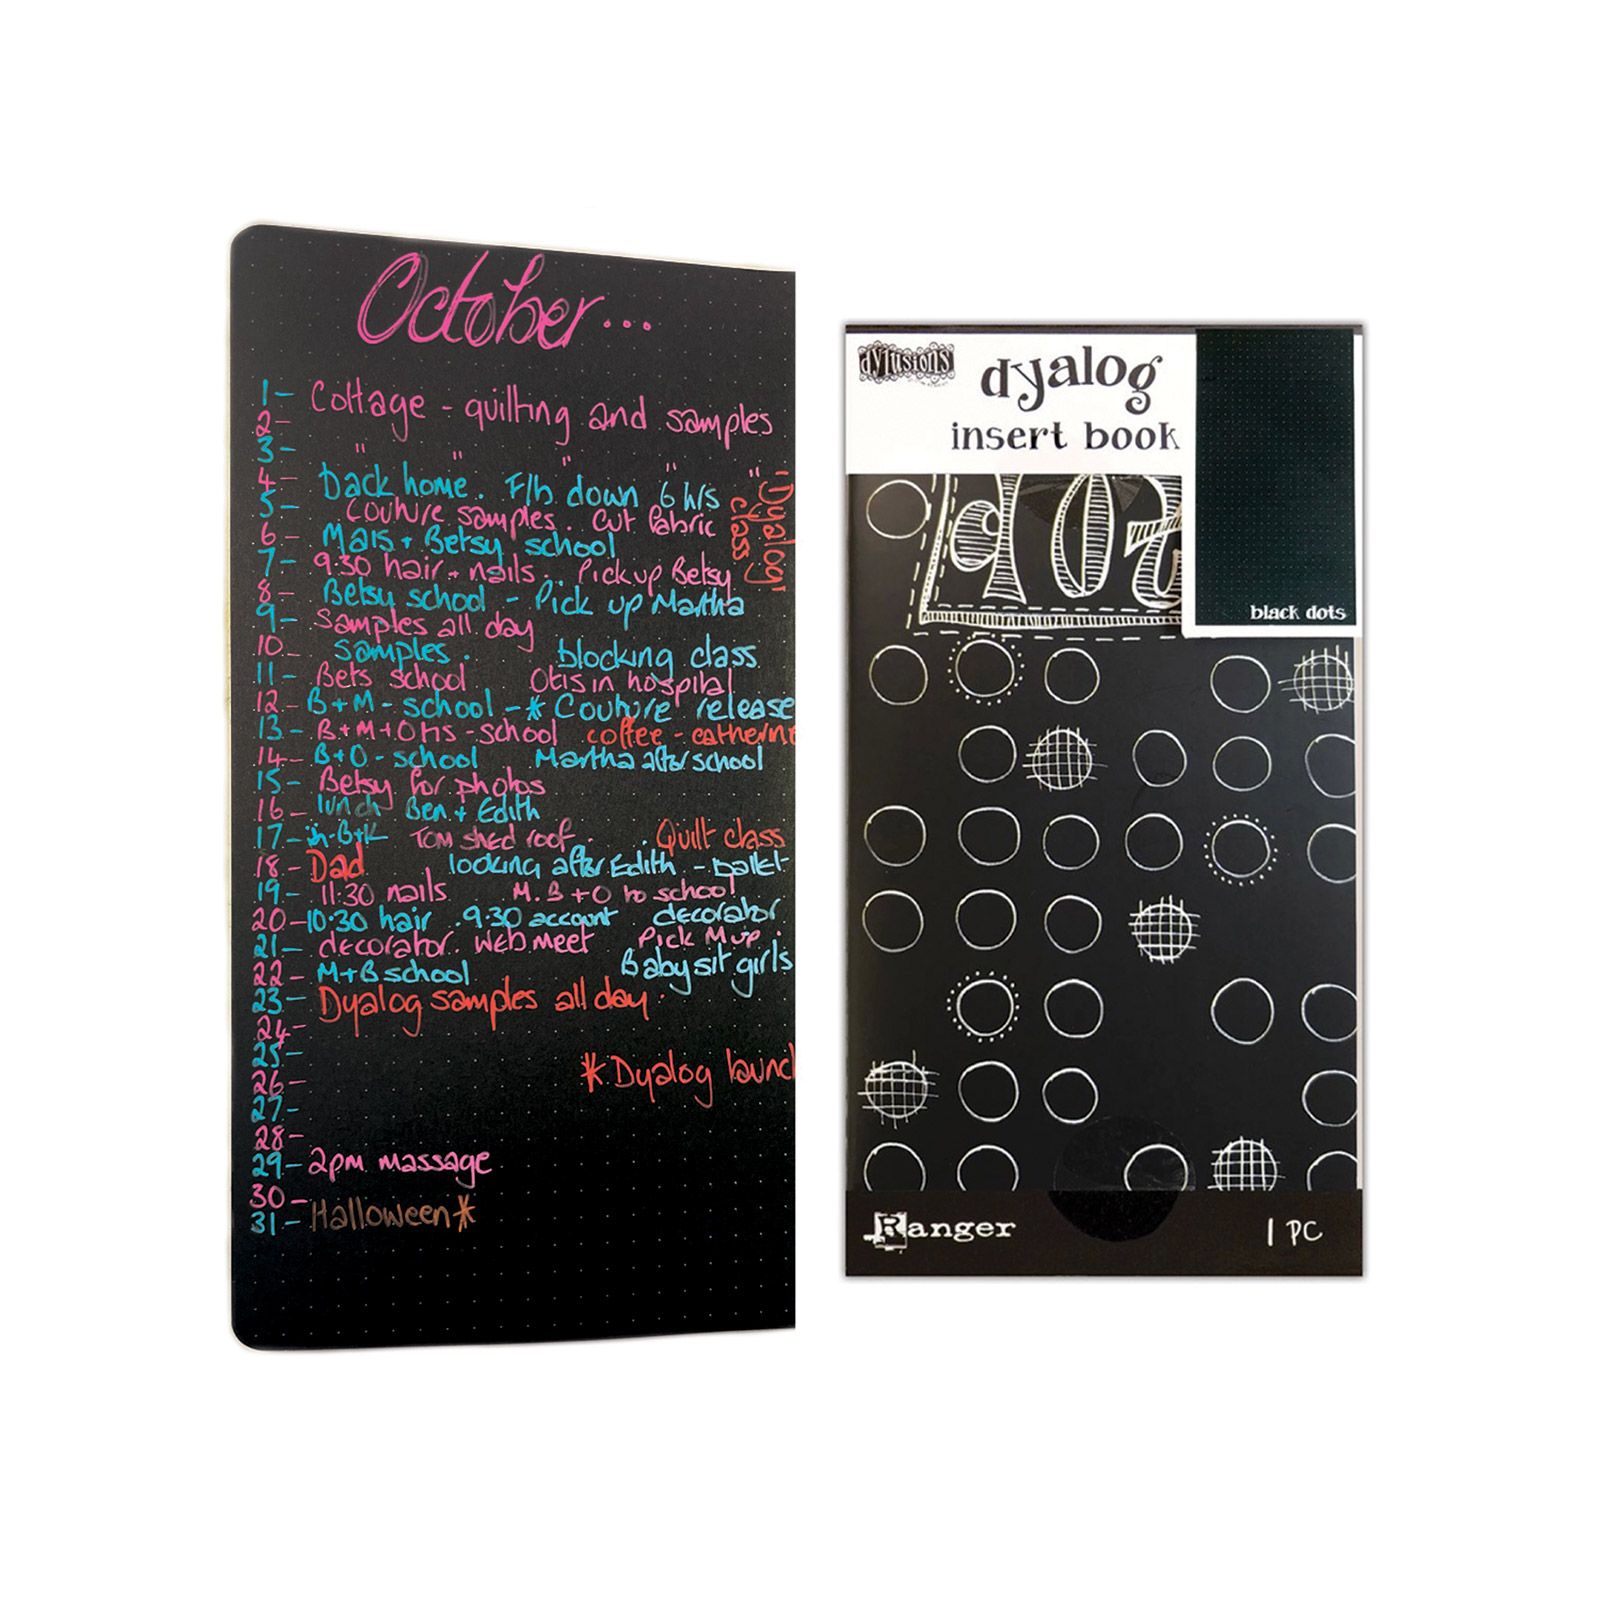 October...
1- Cottage - quilting and samples
2-
3- " " " " "
4- Back home. F/b down 6 hrs
5- Couture samples. Cut fabric
Dyalog class
6- Mars + Betsy school
7- 9:30 hair + nails. Pick up Betsy
8- Betsy school - Pick up Martha
9- Samples all day
10- samples. blocking class
11- Bets school Otis in hospital
12- B+M - school - * Couture release
13- B+M+Otis - school coffee - catherine
14- B+O - school Martha after school
15- Betsy for photos
16- lunch Ben + Edith
17- Tom shed roof. Quilt class
18- Dad looking after Edith - ballet
19- 11:30 nails M.B+O to school
20- 10:30 hair. 9.30 account decorator
21- decorator. Web meet Pick M up.
22- M+B school Babysit girls
23- Dyalog samples all day.
24-
25-
26- * Dyalog launch
27-
28-
29- 2pm massage
30-
31- Halloween *
dylusions
dyalog
insert book
dot
black dots
Ranger
1 PC